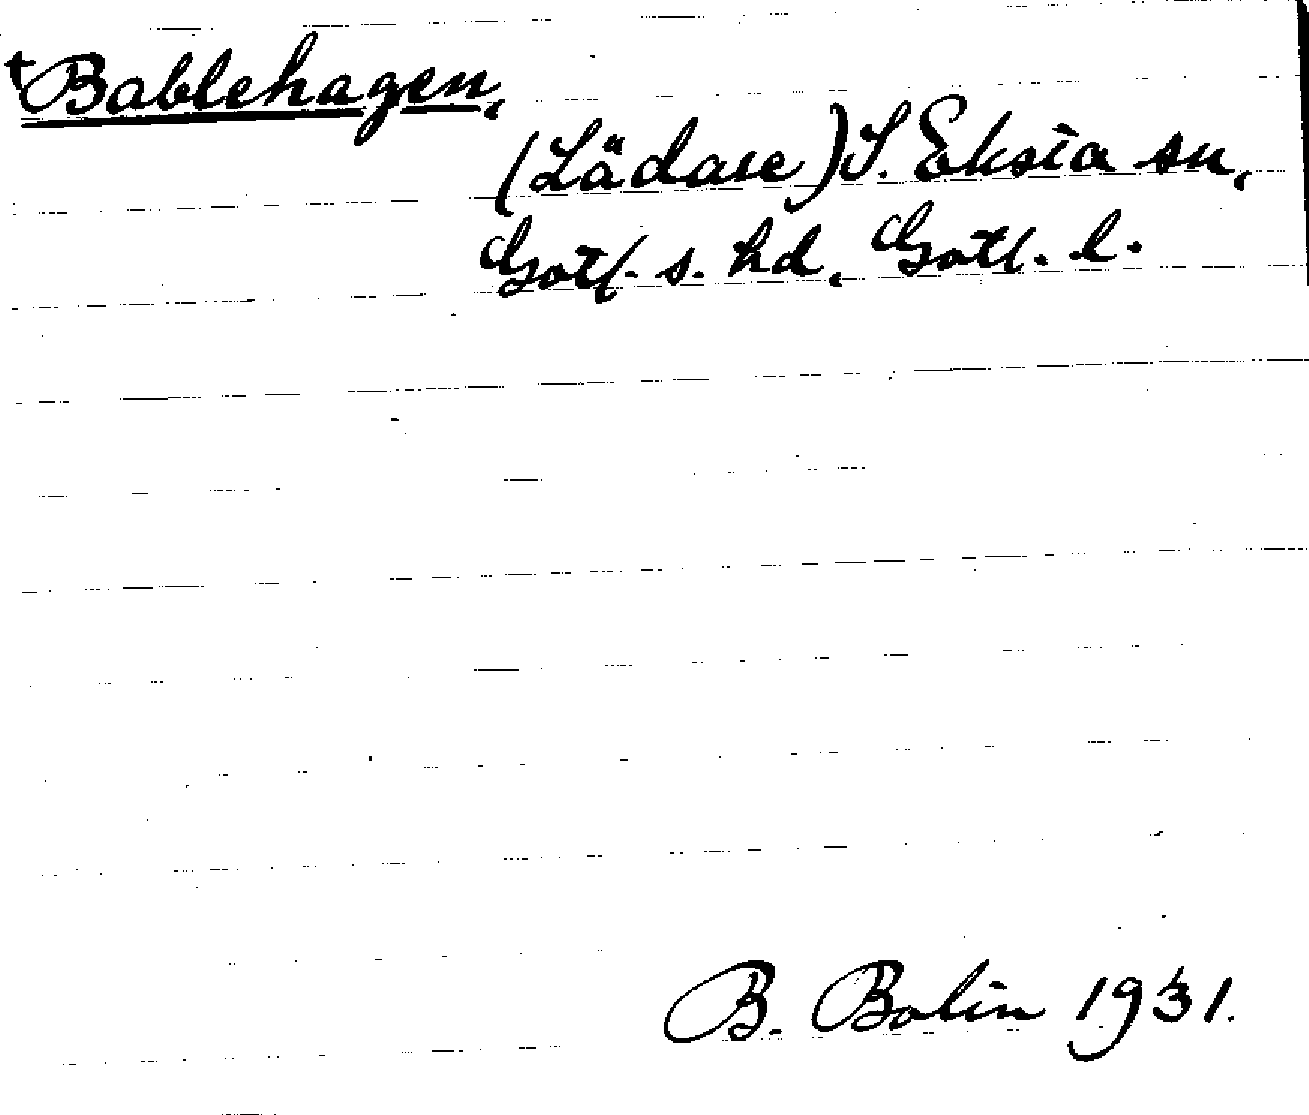 +Bablehagen,
(Lädare) S. Eksta sn,
Gotl. s. hd, Gotl. l.
B. Bolin 1931.